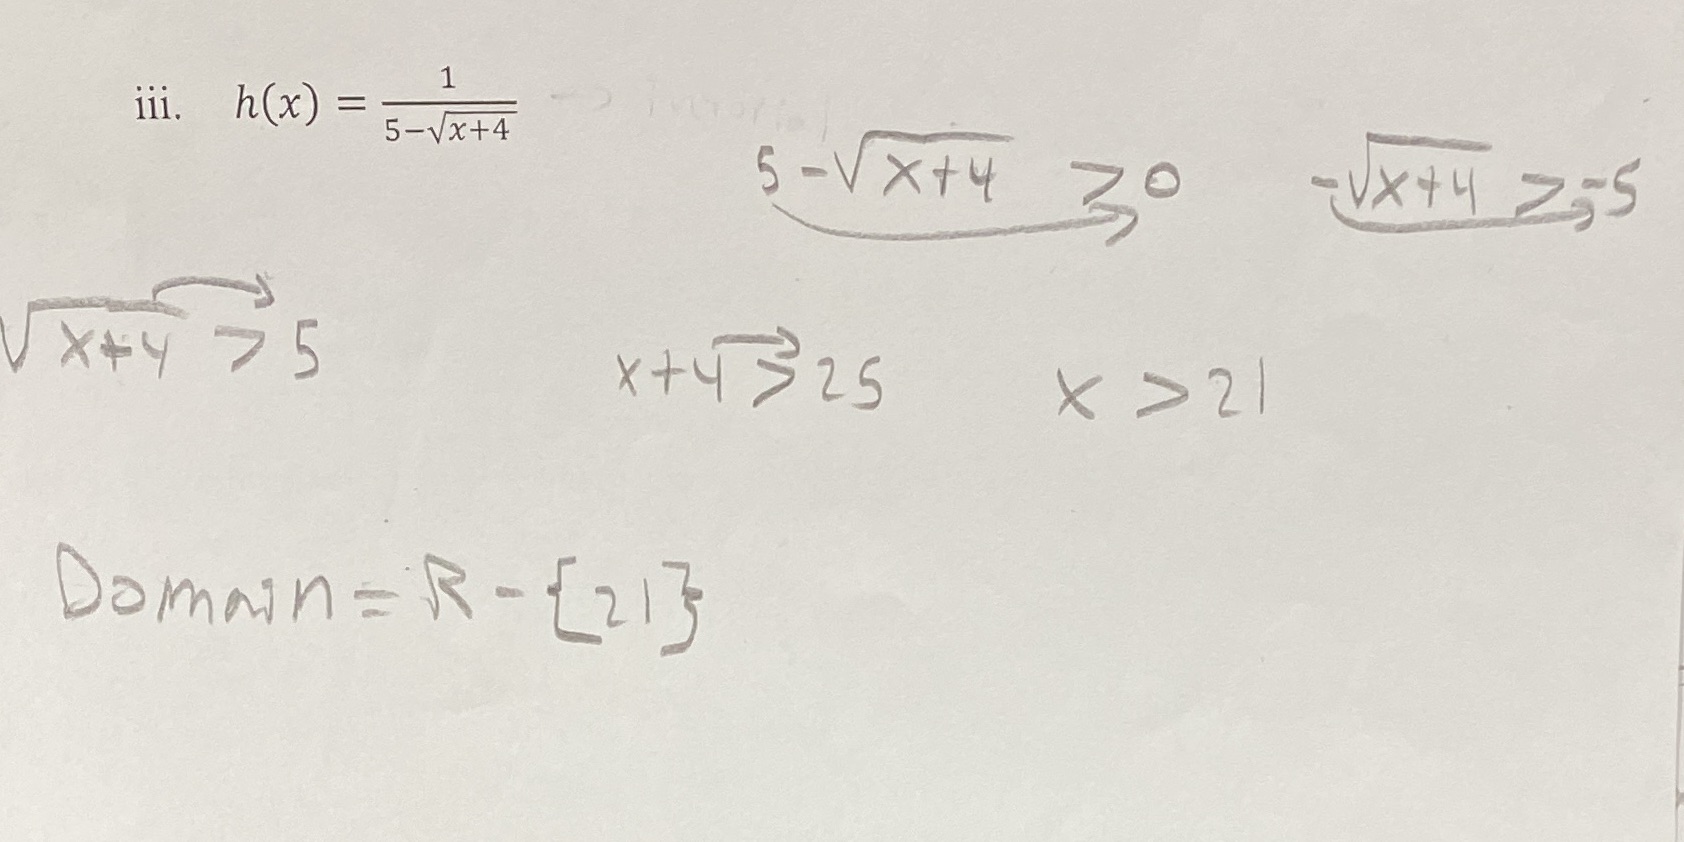 iii. h(x) = 1/(5−√(x+4))
5 -√(x+4) > 0    -√(x+4) > -5
√(x+4) > 5
x+4 > 25    x > 21
Domain = R - {21}